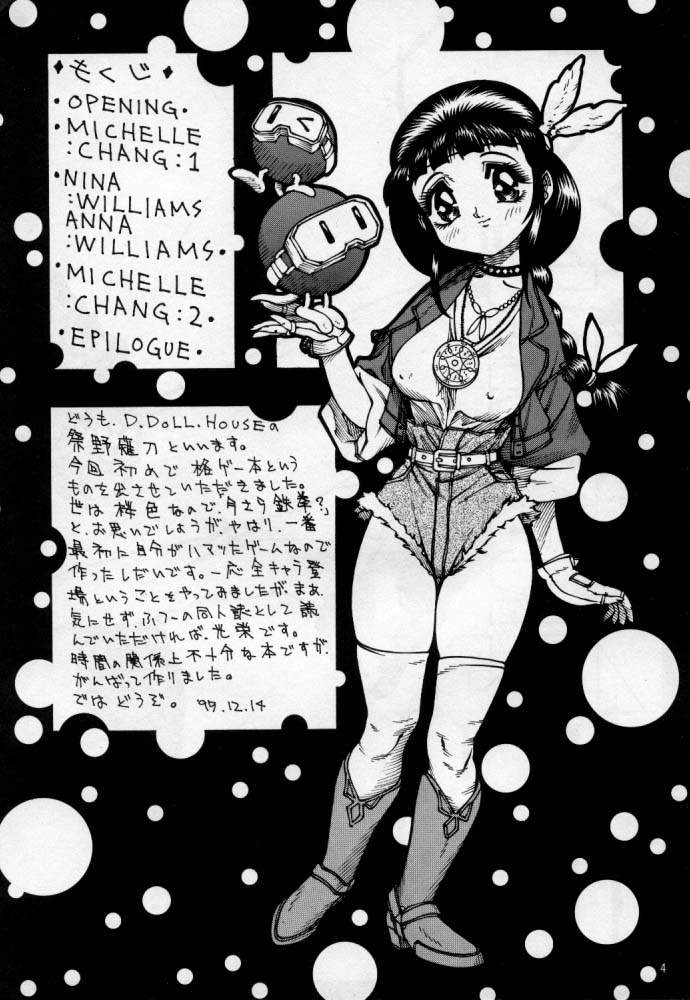 ♦もくじ♦
・OPENING・
・MICHELLE
:CHANG:1
・NINA
:WILLIAMS
ANNA
:WILLIAMS・
・MICHELLE
:CHANG:2・
・EPILOGUE・
どうも、D.DOLL.HOUSEの
祭野薙刀といいます。
今回初めて格ゲー本という
ものを出させていただきました。
世は 色なので、「今さら鉄拳?」
と、お思いでしょうが、やはり、一番
最初に自分がハマッたゲームなので
作ったしだいです。一応全キャラ登
場ということをやってみましたが、まあ、
気にせず、ふつーの同人誌として読
んでいただければ、光栄です。
時間の関係上不十分な本ですが、
がんばって作りました。
ではどうぞ。 '99.12.14
4